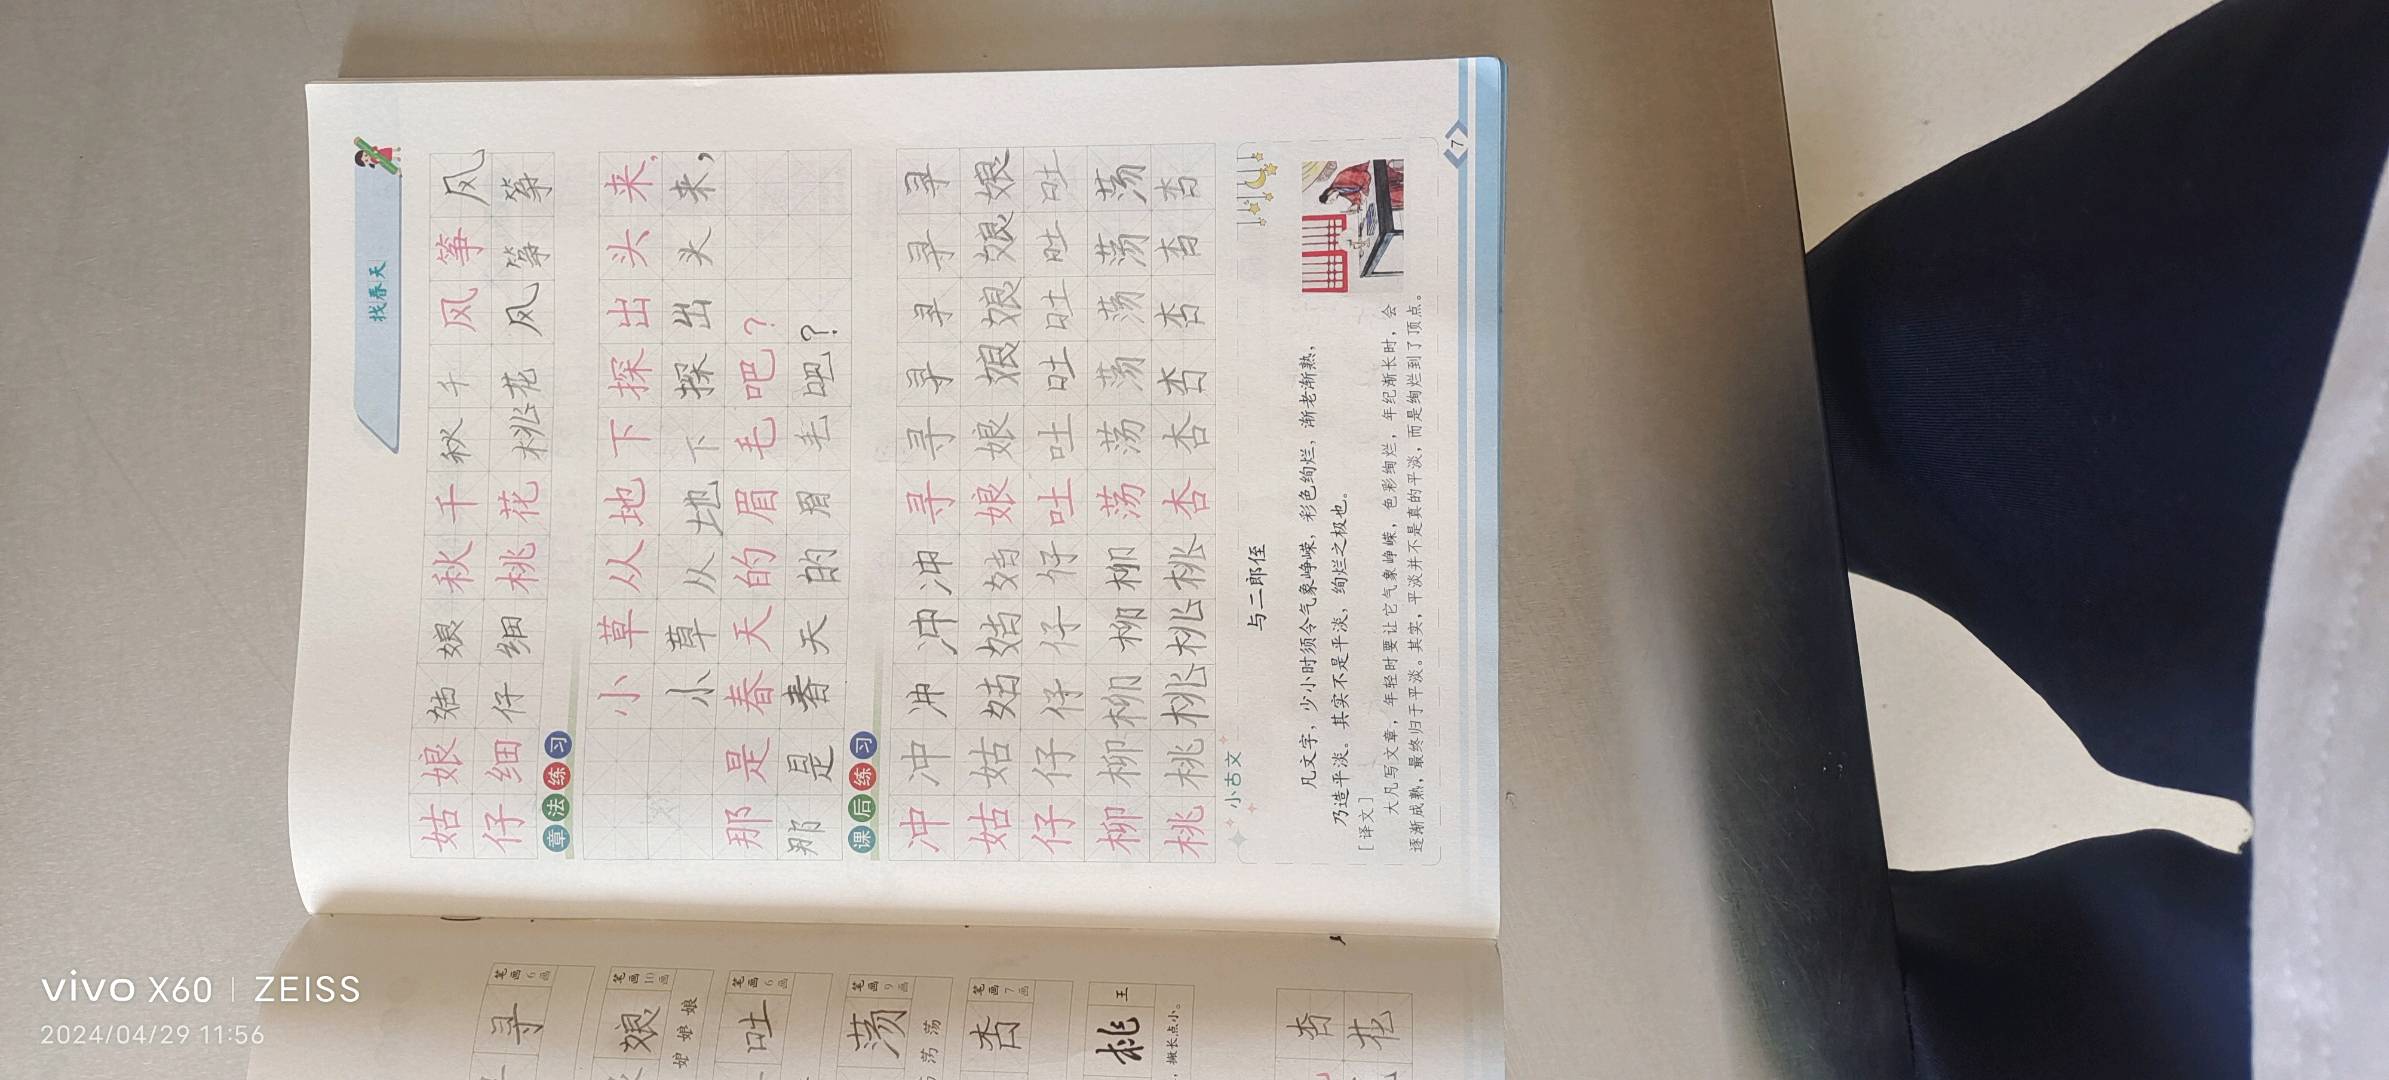 找春天
姑娘姑娘秋千秋千风筝风
仔细仔细桃花桃花风筝筝
章法练习
小草从地下探出头来,
小草从地下探出头来,
那是春天的眉毛吧?
那是春天的眉毛吧?
课后练习
冲冲冲冲冲寻寻寻寻寻寻
姑姑姑姑姑娘娘娘娘娘娘
仔仔仔仔仔吐吐吐吐吐吐
柳柳柳柳柳荡荡荡荡荡荡
桃桃桃桃桃杏杏杏杏杏杏
小古文
与二郎侄
凡文字,少小时须令气象峥嵘,彩色绚烂,渐老渐熟,
乃造平淡。其实不是平淡,绚烂之极也。
[译文]
大凡写文章,年轻时要让它气象峥嵘,色彩绚烂,年纪渐长时,会
逐渐成熟,最终归于平淡。其实,平淡并不是真的平淡,而是绚烂到了顶点。
7
寻 笔画6画
娘 笔画10画
娘 娘 娘
吐 笔画6画
荡 笔画9画
荡 荡
杏 笔画7画
桃 王
,撇长点小。
杏
花
vivo X60 | ZEISS
2024/04/29 11:56